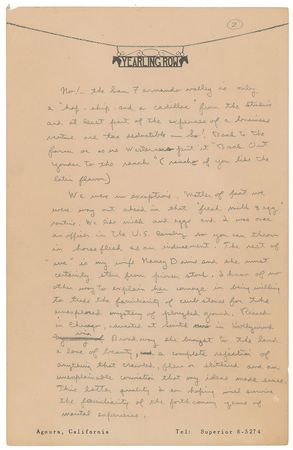 2
YEARLING ROW
No! - the San Fernando valley is only
a "hop, skip and a cadillac" from the studios
and at least part of the expenses of a business
venture are tax deductible - So! Back to the
farm or as we Westerners put it "Back Out
yonder to the ranch" (rancho if you like the
latin flavor)
We were no exceptions. Matter of fact we
were way out ahead in that "fresh milk & egg"
routine. We like milk and eggs and I was once
an officer in the U.S. Cavalry so you can throw
in horseflesh as an inducement. The rest of
"we" is my wife Nancy Davis and she must
certainly stem from pioneer stock. I know of no
other way to explain her courage in being willing
to trade the familiarity of curb stones for the
unexplored mystery of ploughed ground. Raised
in Chicago, educated at Smith in Hollywood
via Broadway she brought to the land
a love of beauty, a complete rejection of
anything that crawled, flew or slithered and an
unexplainable conviction that my ideas made sense.
This latter quality I am hoping will survive
the familiarity of the forthcoming years of
marital experience.
Agoura, California Tel: Superior 8-5274